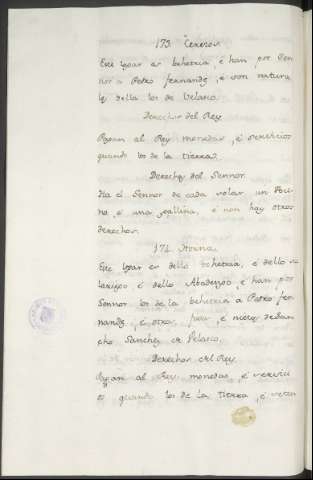 173. Cereros.
Este logar es behetria, é han por Sen
nor a Pedro fernandz, é son natura
les della los de Velasco.
Derechos del Rey.
Pagan al Rey monedas, é servicios
quando los de la tierra.
Derechos del Sennor.
Ha el Sennor de cada solar un toci
no, é una gallina, é non hay otros
derechos.
174.
Este logar es dello behetria, é dello so
lariego é dello Abadengo, é han por
Sennor los de la behetria a Pedro fer
nandz, é otros, é nietos de San
cho Sanchez de Velasco.
Derechos del Rey.
Pagan al Rey monedas, é servici
os quando los de la tierra, é